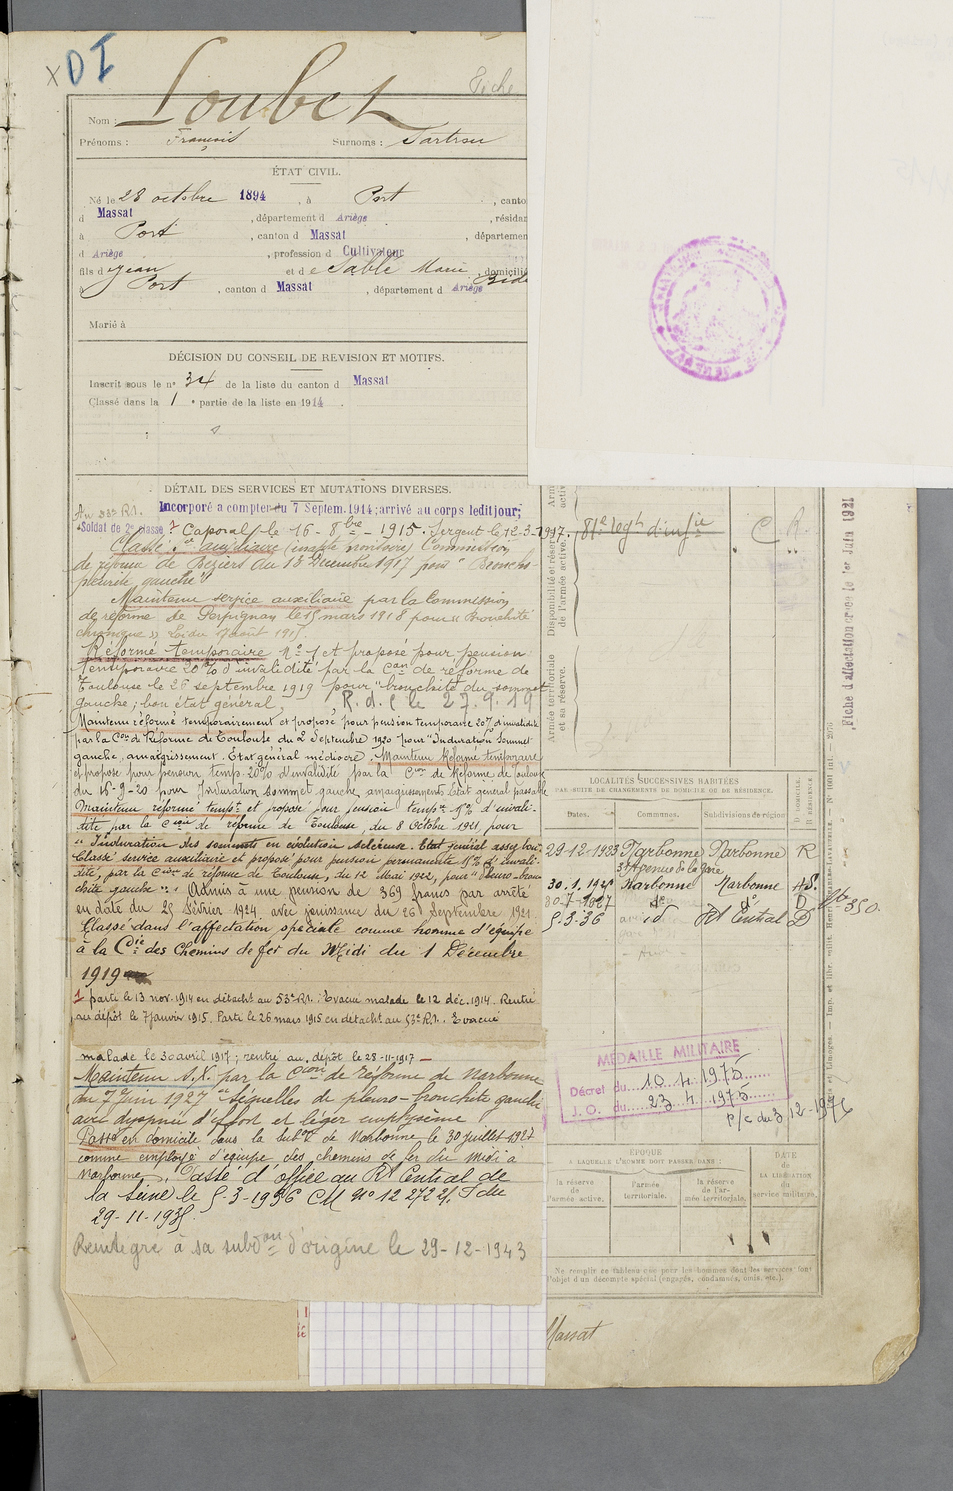 X D I
Fiche
Nom : Loubet
Prénoms : François Surnoms : Tartrou
ÉTAT CIVIL.
Né le 28 octobre 1894, à Port, canto
d Massat, département d Ariège, résidan
à Port, canton d Massat, départemen
d Ariège, profession d Cultivateur
fils d e Jean et d e Sablé Marie, domicilié
à Port, canton d Massat, département d Ariège
Marié à
DÉCISION DU CONSEIL DE REVISION ET MOTIFS.
Inscrit sous le n° 34 de la liste du canton d Massat
Classé dans la 1 e partie de la liste en 1914.
DÉTAIL DES SERVICES ET MUTATIONS DIVERSES.
Au 53e R.I. Incorporé a compter du 7 Septem. 1914; arrivé au corps ledit jour;
Soldat de 2e classe 1 Caporal le 16-8bre-1915. Sergent le 12-3-1917.
Classé sce auxiliaire (inapte provisoire) Commission
de réforme de Béziers du 18 Décembre 1917 pour "Broncho-
pleurite gauche"
Maintenu service auxiliaire par la Commission
de réforme de Perpignan le 15 mars 1918 pour "Bronchite
chronique" Loi du 17 août 1915.
Réformé temporaire N° 1 et proposé pour pension
temporaire 20% d'invalidité par la Con de réforme de
Toulouse le 26 septembre 1919 pour "bronchite du sommet
gauche; bon état général, R.d.C le 27.9.19
Maintenu réformé temporairement et proposé pour pension temporaire 20% d'invalidité
par la Con de Réforme de Toulouse du 2 Septembre 1920 pour "Induration Sommet
gauche, amaigrissement. Etat général médiocre. Maintenu Réformé temporaire
et proposé pour pension temp. 20% d'invalidité par la Con de Réforme de Toulouse
du 16-9-20 pour Induration sommet gauche, amaigrissement. Etat général passable
Maintenu réformé tempre et proposé pour pension tempre 15% d'invali-
dité par la Con de réforme de Toulouse, du 8 Octobre 1921, pour
"Induration des sommets en évolution scléreuse. Etat général assez bon.
Classé service auxiliaire et proposé pour pension permanente 15% d'invali-
dité, par la Con de réforme de Toulouse, du 12 Mai 1922, pour "Pleuro-bron-
chite gauche". Admis à une pension de 369 francs par arrêté
en date du 25 Février 1924 avec jouissance du 26 Septembre 1921.
Classé dans l'affectation spéciale comme homme d'équipe
à la Cie des Chemins de fer du Midi du 1 Décembre
1919
1 parti le 13 nov. 1914 en détacht au 53e R.I. Evacué malade le 12 déc. 1914. Rentré
au dépôt le 7 Janvier 1915. Parti le 26 mars 1915 en détacht au 53e R.I. Evacué
malade le 30 avril 1917; rentré au dépôt le 28-11-1917
Maintenu S.X. par la Con de réforme de Narbonne
du 7 Juin 1927 "Séquelles de pleuro-bronchite gauche
avec dyspnée d'effort et léger emphysème
Passé en domicile dans la subon de Narbonne le 30 juillet 1927
comme employé d'équipe des chemins de fer du Midi à
Narbonne. Passé d'office au Rt Central de
la Seine le 5-3-1936 CM N° 12 272 du
29-11-1935.
Réintégré à sa subdon d'origine le 29-12-1943
Disponibilité et réserve de l'armée active.
81e regt d'infie
C R.
Armée territoriale et sa réserve.
Fiche d'affectation créée le 1er Juin 1921
LOCALITÉS SUCCESSIVES HABITÉES
PAR SUITE DE CHANGEMENTS DE DOMICILE OU DE RÉSIDENCE.
Dates. Communes. Subdivisions de région D DOMICILE. R RÉSIDENCE.
29-12-1923 Narbonne Narbonne R
Avenue de la Gare
30.1.1925 Narbonne Narbonne A.S.
30-7-1927 de d° D
5-3-36 id Rt Central D
350.
MEDAILLE MILITAIRE
Décret du 10.4.1975
J.O. du 23.4.1975
p/c du 3.12.1976
ÉPOQUE
A LAQUELLE L'HOMME DOIT PASSER DANS :
la réserve de l'armée active. l'armée territoriale. la réserve de l'armée territoriale.
DATE de LA LIBÉRATION du service militaire.
Ne remplir ce tableau que pour les hommes dont les services font
l'objet d'un décompte spécial (engagés, condamnés, omis, etc.).
Massat